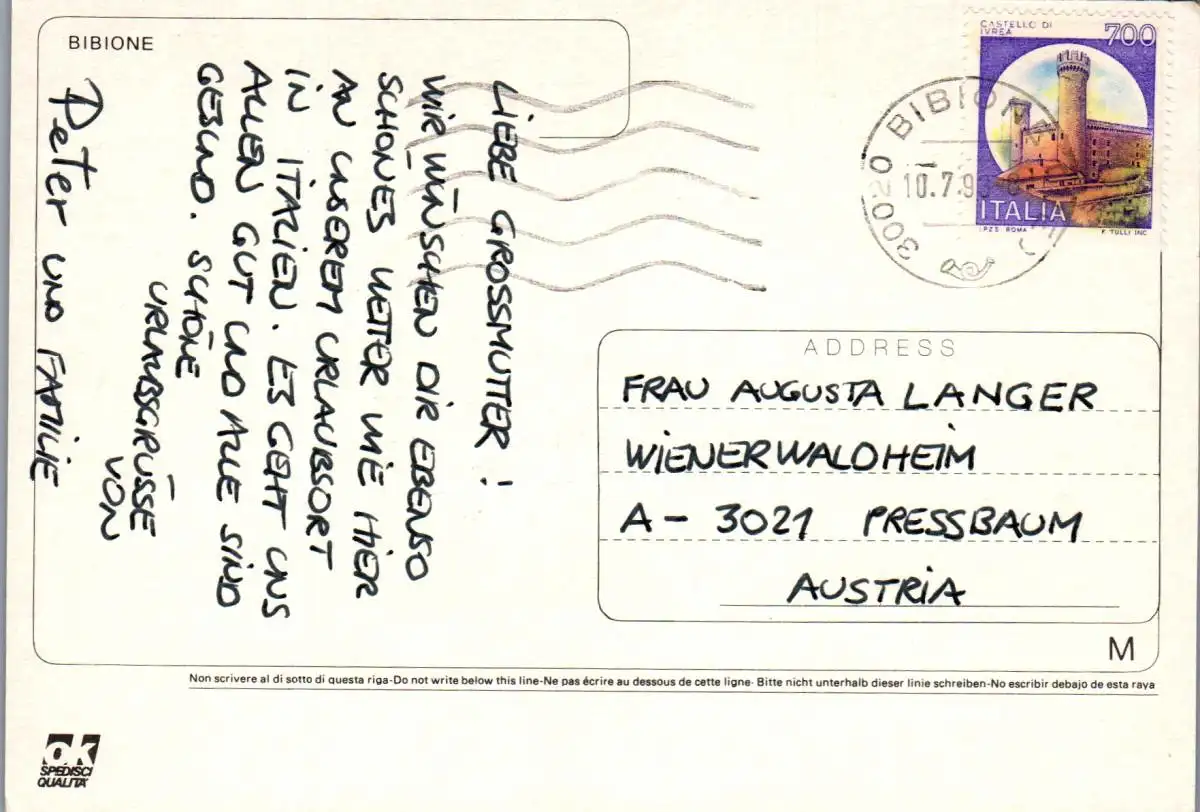 BIBIONE
LIEBE GROSSMUTTER!
WIR WÜNSCHEN DIR EBENSO
SCHÖNES WETTER WIE HIER
AN UNSEREM URLAUBSORT
IN ITALIEN. ES GEHT UNS
ALLEN GUT UND ALLE SIND
GESUND. SCHÖNE
URLAUBSGRÜSSE
VON
Peter UND FAMILIE
CASTELLO DI
IVREA
700
ITALIA
I.P.Z.S. ROMA
F. TULLI INC.
30020 BIBIONE
10.7.93
ADDRESS
FRAU AUGUSTA LANGER
WIENERWALDHEIM
A- 3021 PRESSBAUM
AUSTRIA
M
Non scrivere al di sotto di questa riga-Do not write below this line-Ne pas écrire au dessous de cette ligne- Bitte nicht unterhalb dieser linie schreiben-No escribir debajo de esta raya
ok
SPEDISCI
QUALITA'